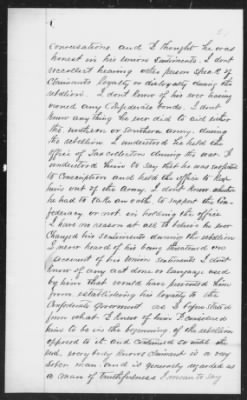 conversations, and I thought he was
honest in his union sentiments. I dont
recollect hearing other person speak of
Claimants loyalty or disloyalty during the
rebellion. I dont know of his ever having
owned any Confederate bonds. I dont
know anything he ever did to aid either
the northern or southern army, during
the rebellion. I understood he held the
office of Tax collector during the war. I
understood him to say that he was opposed
to Conscription and held the office to keep
him out of the Army. I dont know whether
he had to take an oath to support the Con-
federacy or not in holding the office
I have no reason at all to believe he ever
Changed his sentiments during the rebellion
I never heard of his being threatened on
account of his union sentiments I dont
know of any act done or language used
by him that would have prevented him
from establishing his loyalty to the
Confederate Government and I before stated
from what I knew of him I considered
him to be in the beginning of the rebellion
opposed to it and continued so until the
end. every body knows claimant is a very
sober man and is generally regarded as
a man of truthfulness I mean to say